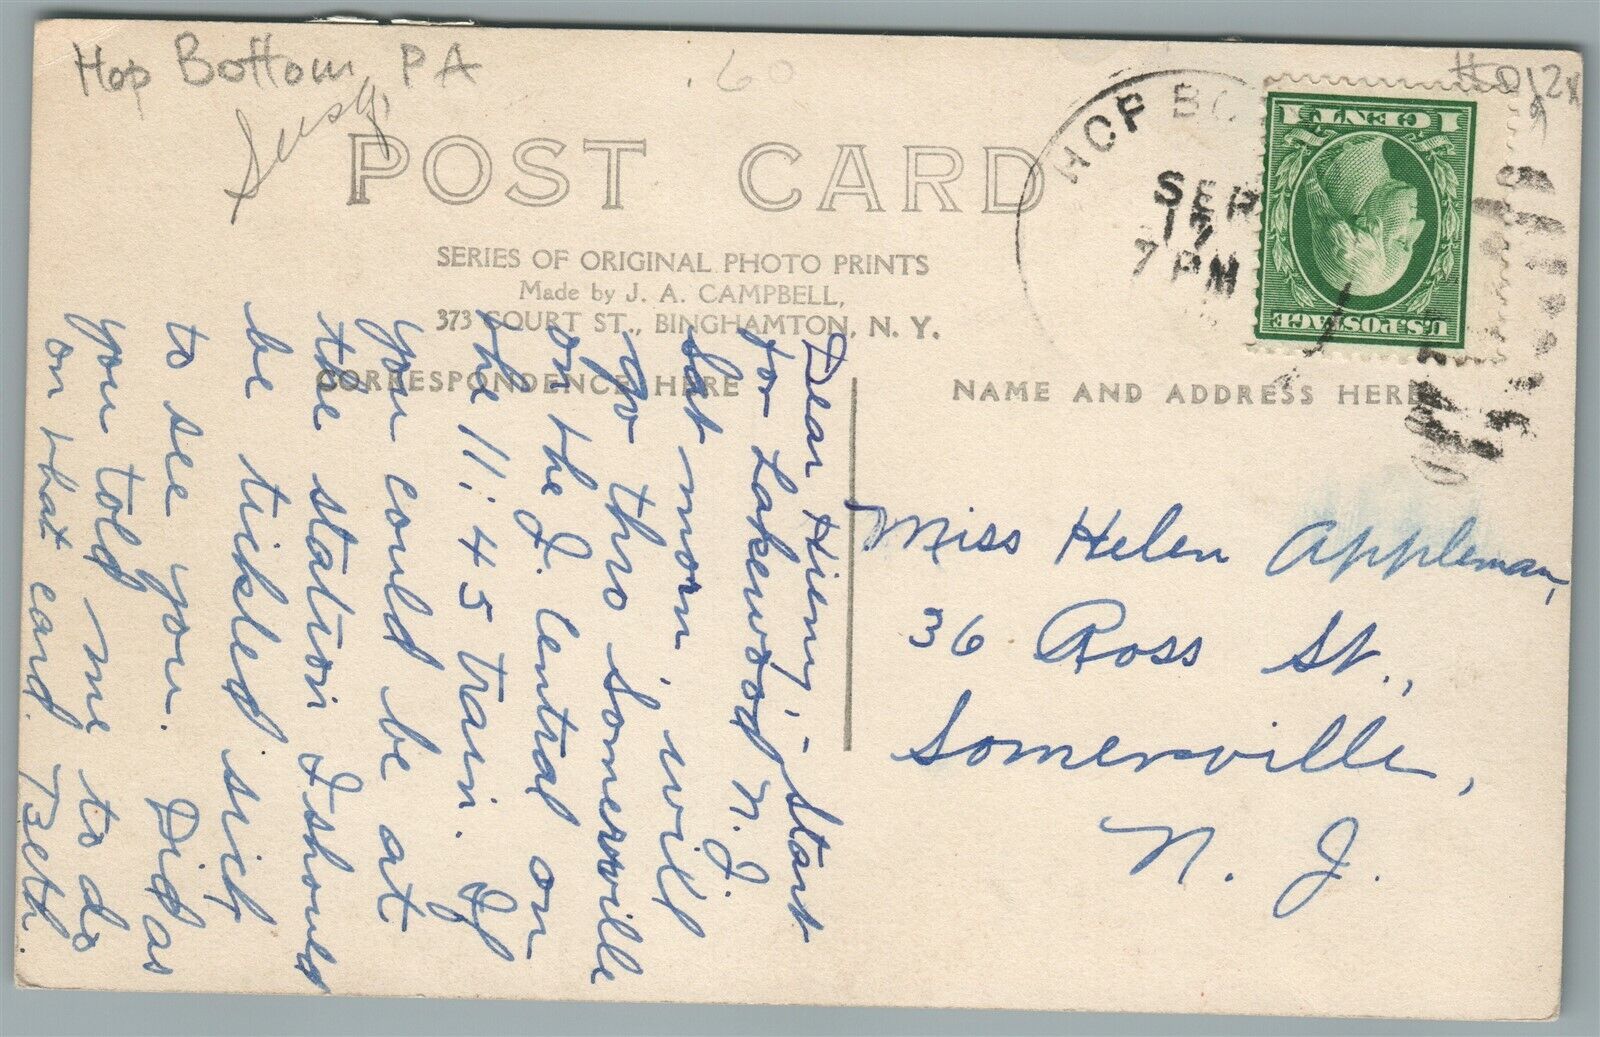 Hop Bottom, PA
Susq,
.60
POST CARD
SERIES OF ORIGINAL PHOTO PRINTS
Made by J. A. CAMPBELL,
373 COURT ST., BINGHAMTON, N. Y.
CORRESPONDENCE HERE
NAME AND ADDRESS HERE
HOP BO
SEP
17
7 PM
1 CENT 1
U.S. POSTAGE
Dear Hieny; - Start
for Lakewood N. J.
Sat morn, will
go thro Somerville
on the J. Central on
the 11:45 train. If
you could be at
the station I should
be tickled sick
to see you. Did as
you told me to do
on that card. Beth.
Miss Helen Appleman,
36 Ross St.,
Somerville,
N. J.